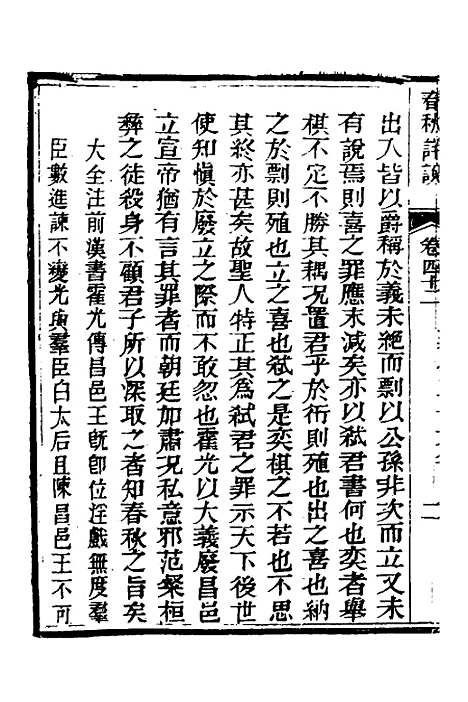 春秋詳說
卷四十二
二
出入皆以爵稱於義未絶而剽以公孫非次而立又未
有說焉則喜之罪應末減矣亦以弑君書何也奕者舉
棋不定不勝其耦况置君乎於衎則殖也出之喜也納
之於剽則殖也立之喜也弑之是奕棋之不若也不思
其終亦甚矣故聖人特正其爲弑君之罪示天下後世
使知愼於廢立之際而不敢忽也霍光以大義廢昌邑
立宣帝猶有言其罪者而朝廷加肅况私意邪范粲桓
彝之徒殺身不顧君子所以深取之者知春秋之旨矣
大全注前漢書霍光傳昌邑王既卽位淫戲無度羣
臣數進諫不變光與羣臣白太后且陳昌邑王不可